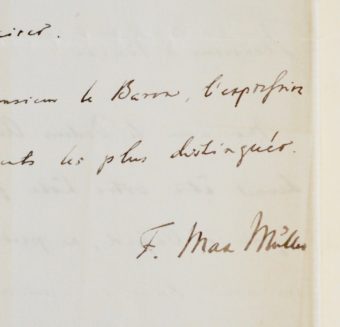 Monsieur le Baron, l'expression
les plus distingués.
F. Max Müller